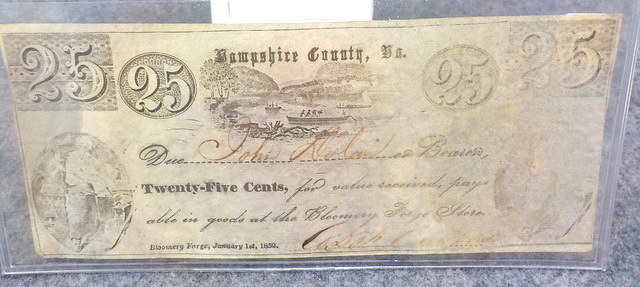 25 25 Hampshire County, Va. 25 25
Due John or Bearer,
Twenty-Five Cents, for value received, pay-
able in goods at the Bloomery Forge Store.
Bloomery Forge, January 1st, 1852.